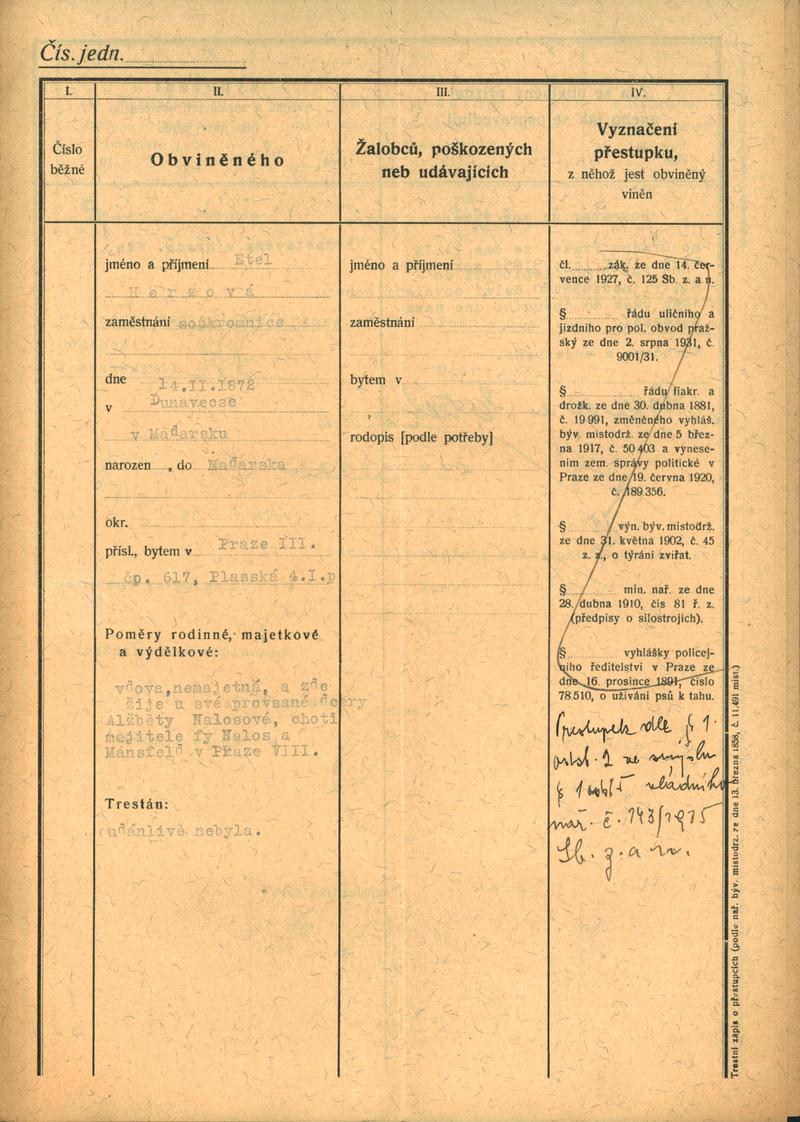 Čís. jedn.
I.
II.
III.
IV.
Číslo
běžné
Obviněného
Žalobců, poškozených
neb udávajících
Vyznačení
přestupku,
z něhož jest obviněný
viněn
jméno a příjmení Etel
Herzová
zaměstnání soukromnice
dne 14.II.1872
v Dunavecse
v Maďarsku
narozen , do Maďarska
okr.
přísl., bytem v Praze III.
čp. 617, Plasská 4.I.p
Poměry rodinné, majetkové
a výdělkové:
vdova,nemajetná, a zde
žije u své provsané dcery
Alžběty Nalosové, choti
majitele fy Nalos a
Mansfeld v Praze VIII.
Trestán:
udánlivě nebyla.
jméno a příjmení
zaměstnání
bytem v
rodopis [podle potřeby]
čl. zák. ze dne 14. čer-
vence 1927, č. 125 Sb. z. a n.
§ řádu uličního a
jízdního pro pol. obvod praž-
ský ze dne 2. srpna 1931, č.
9001/31.
§ řádu fiakr. a
drožk. ze dne 30. dubna 1881,
č. 19 991, změněného vyhláš.
býv. místodrž. ze dne 5 břez-
na 1917, č. 50 403 a vynese-
ním zem. správy politické v
Praze ze dne 19. června 1920,
č. 189 356.
§ výn. býv. místodrž.
ze dne 31. května 1902, č. 45
z. z., o týrání zvířat.
§ min. nař. ze dne
28. dubna 1910, čís 81 ř. z.
(předpisy o silostrojích).
§ vyhlášky policej-
ního ředitelství v Praze ze
dne 16. prosince 1891, číslo
78 510, o užívání psů k tahu.
Přestupek dle § 1.
odst. 2 ve smyslu
§ 1 vládního
nař. č. 143/1935
Sb. z. a n.
Trestní zápis o přestupcích (podle nař. býv. místodrz. ze dne 13. března 1858, č. 11.491 míst.)